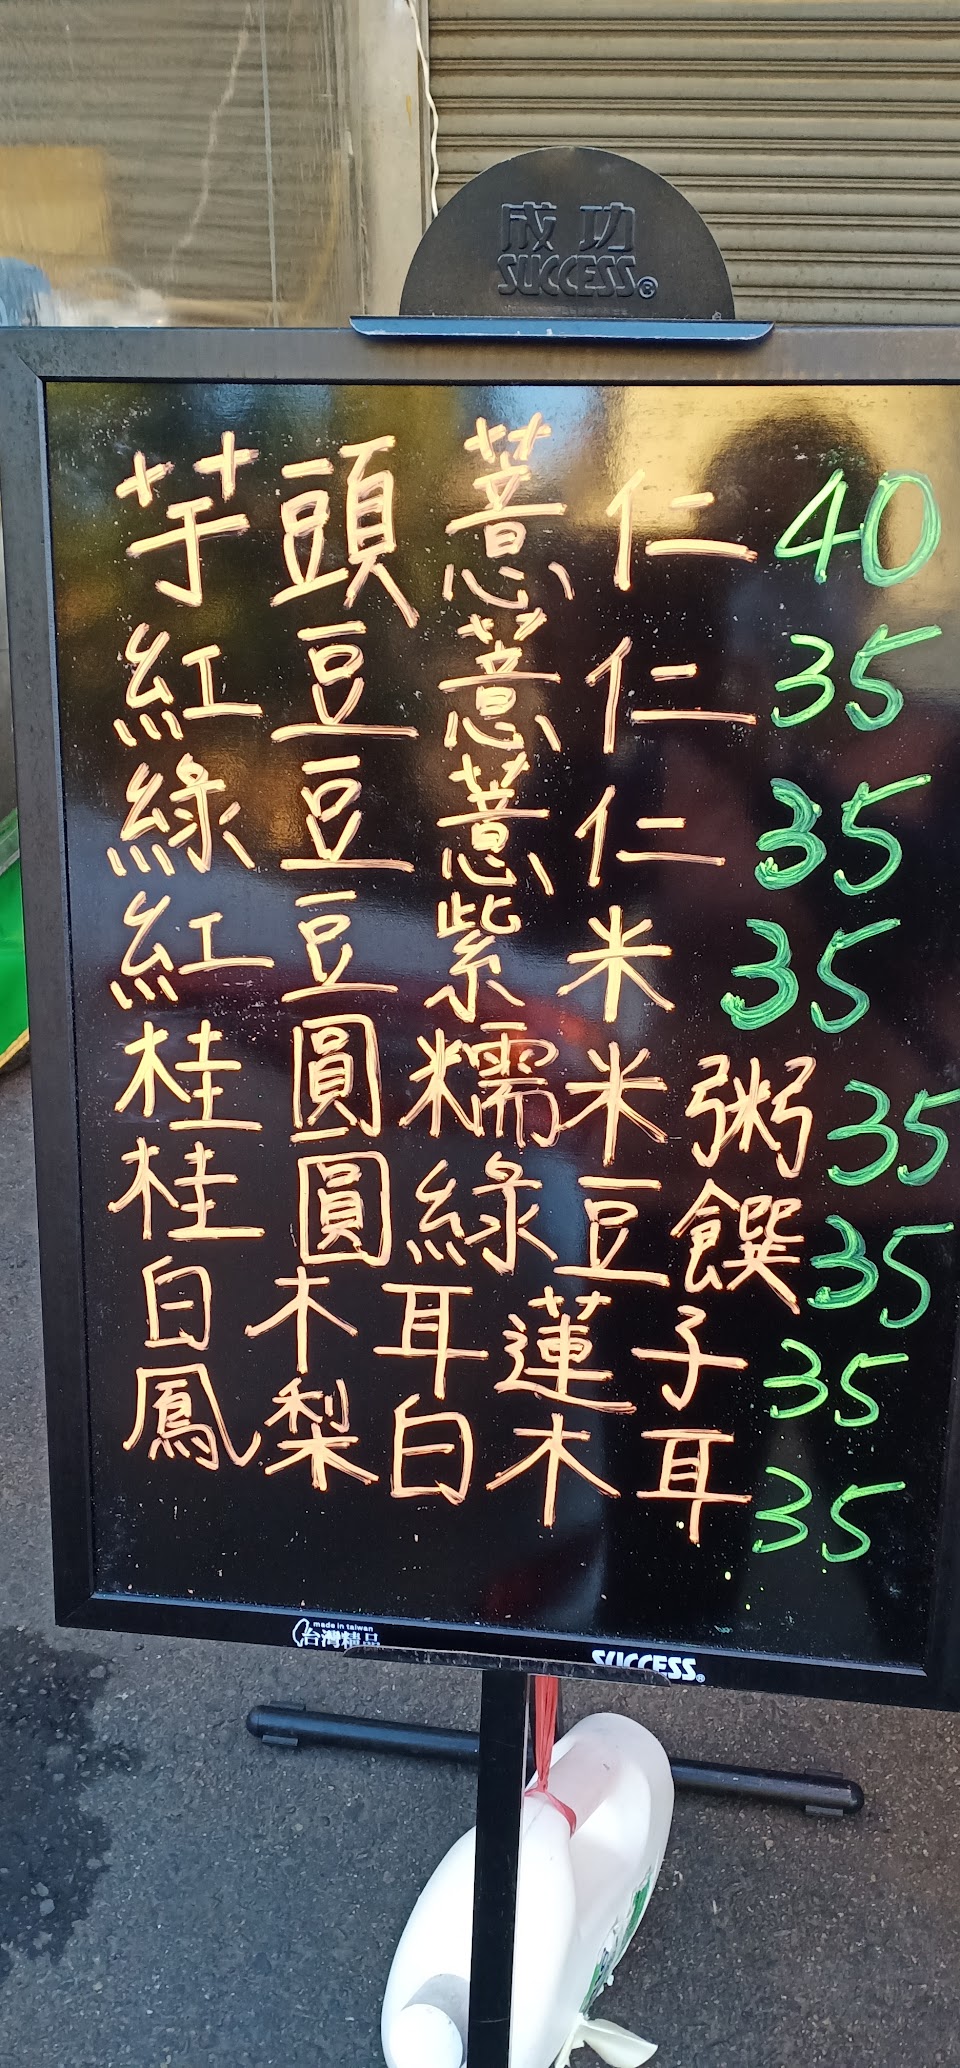 成功
SUCCESS®
芋頭薏仁 40
紅豆薏仁 35
綠豆薏仁 35
紅豆紫米 35
桂圓糯米粥 35
桂圓綠豆饌 35
白木耳蓮子 35
鳳梨白木耳 35
made in taiwan
台灣精品
SUCCESS®